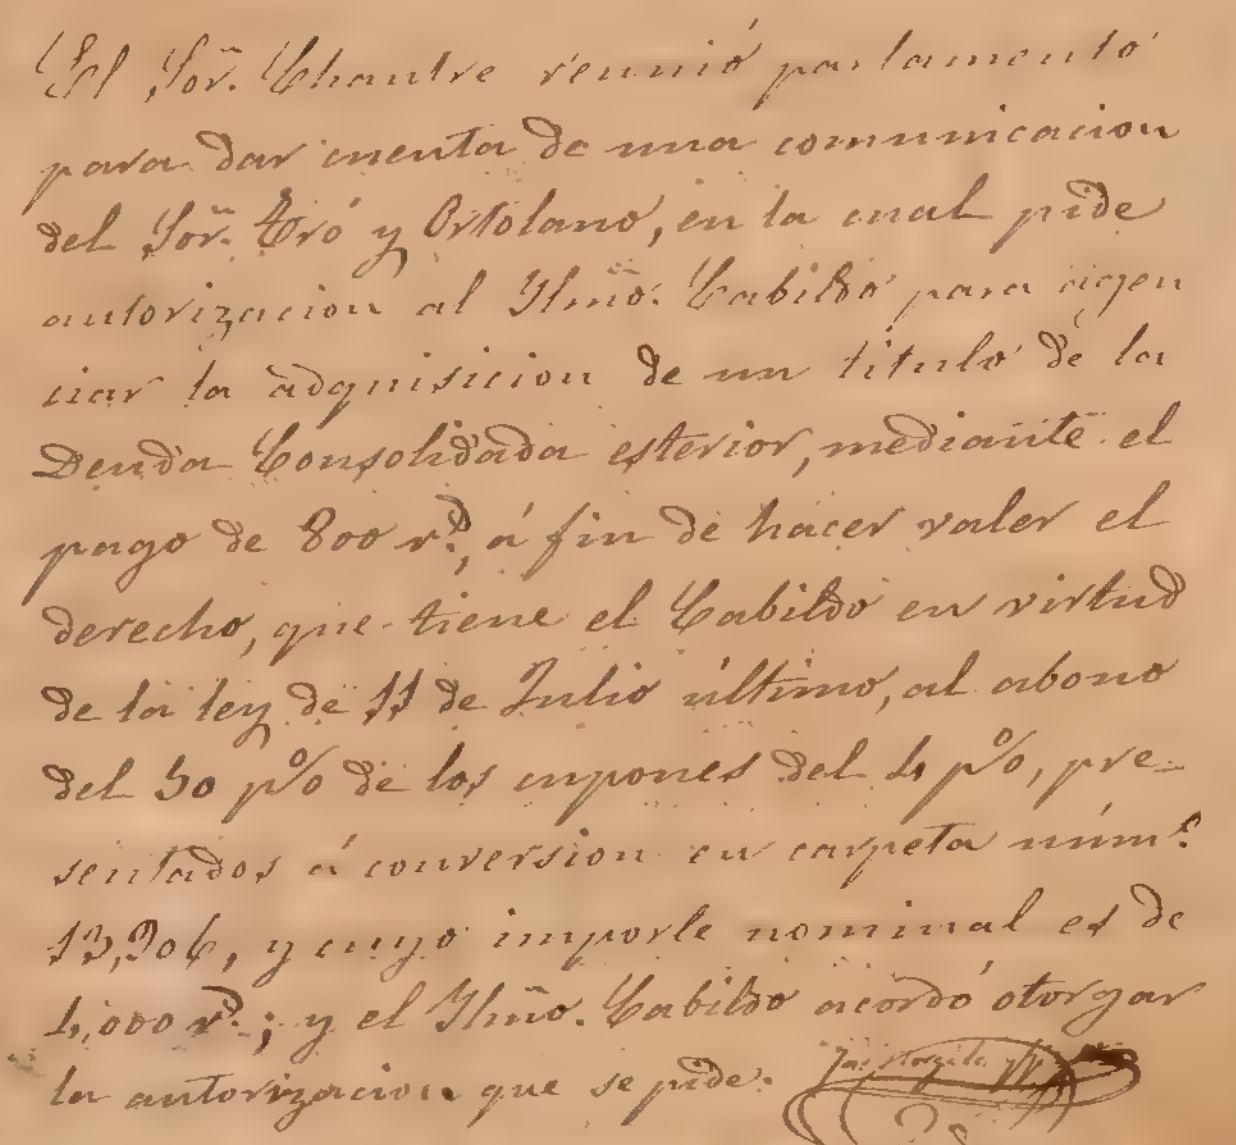 El Sor. Chantre reunió parlamento
para dar cuenta de una comunicacion
del Sor. Eró y Ortolano, en la cual pide
autorizacion al Ylmo. Cabildo para agen
ciar la adquisicion de un titulo de la
Deuda Consolidada esterior, mediante el
pago de 800 rs., á fin de hacer valer el
derecho, que tiene el Cabildo en virtud
de la ley de 11 de Julio último, al abono
del 50 p% de los cupones del 4 p%, pre-
sentados á conversion en carpeta núm.º
13,206, y cuyo importe nominal es de
4,000 rs.; y el Ylmo. Cabildo acordó otorgar
la autorizacion que se pide.